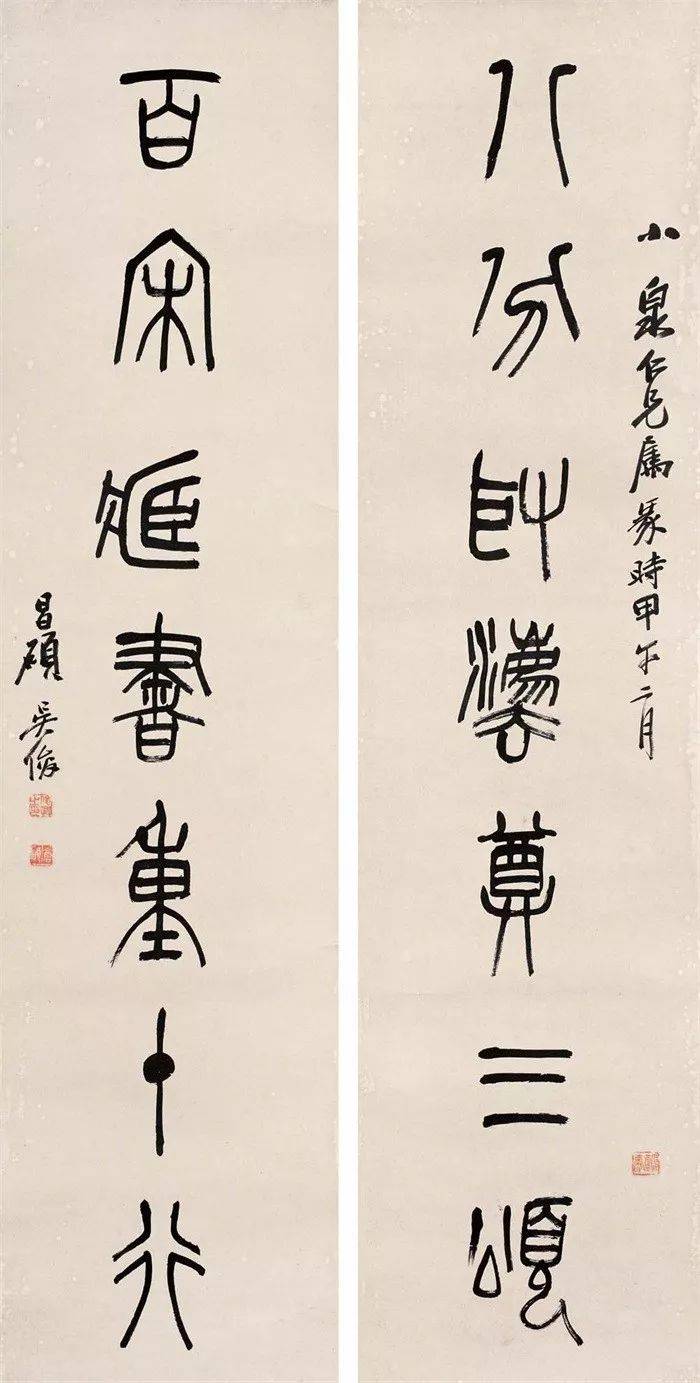 小泉仁兄屬篆時甲午二月
八分師灋尊三頌
百宋臧書重十行
昌碩吳俊